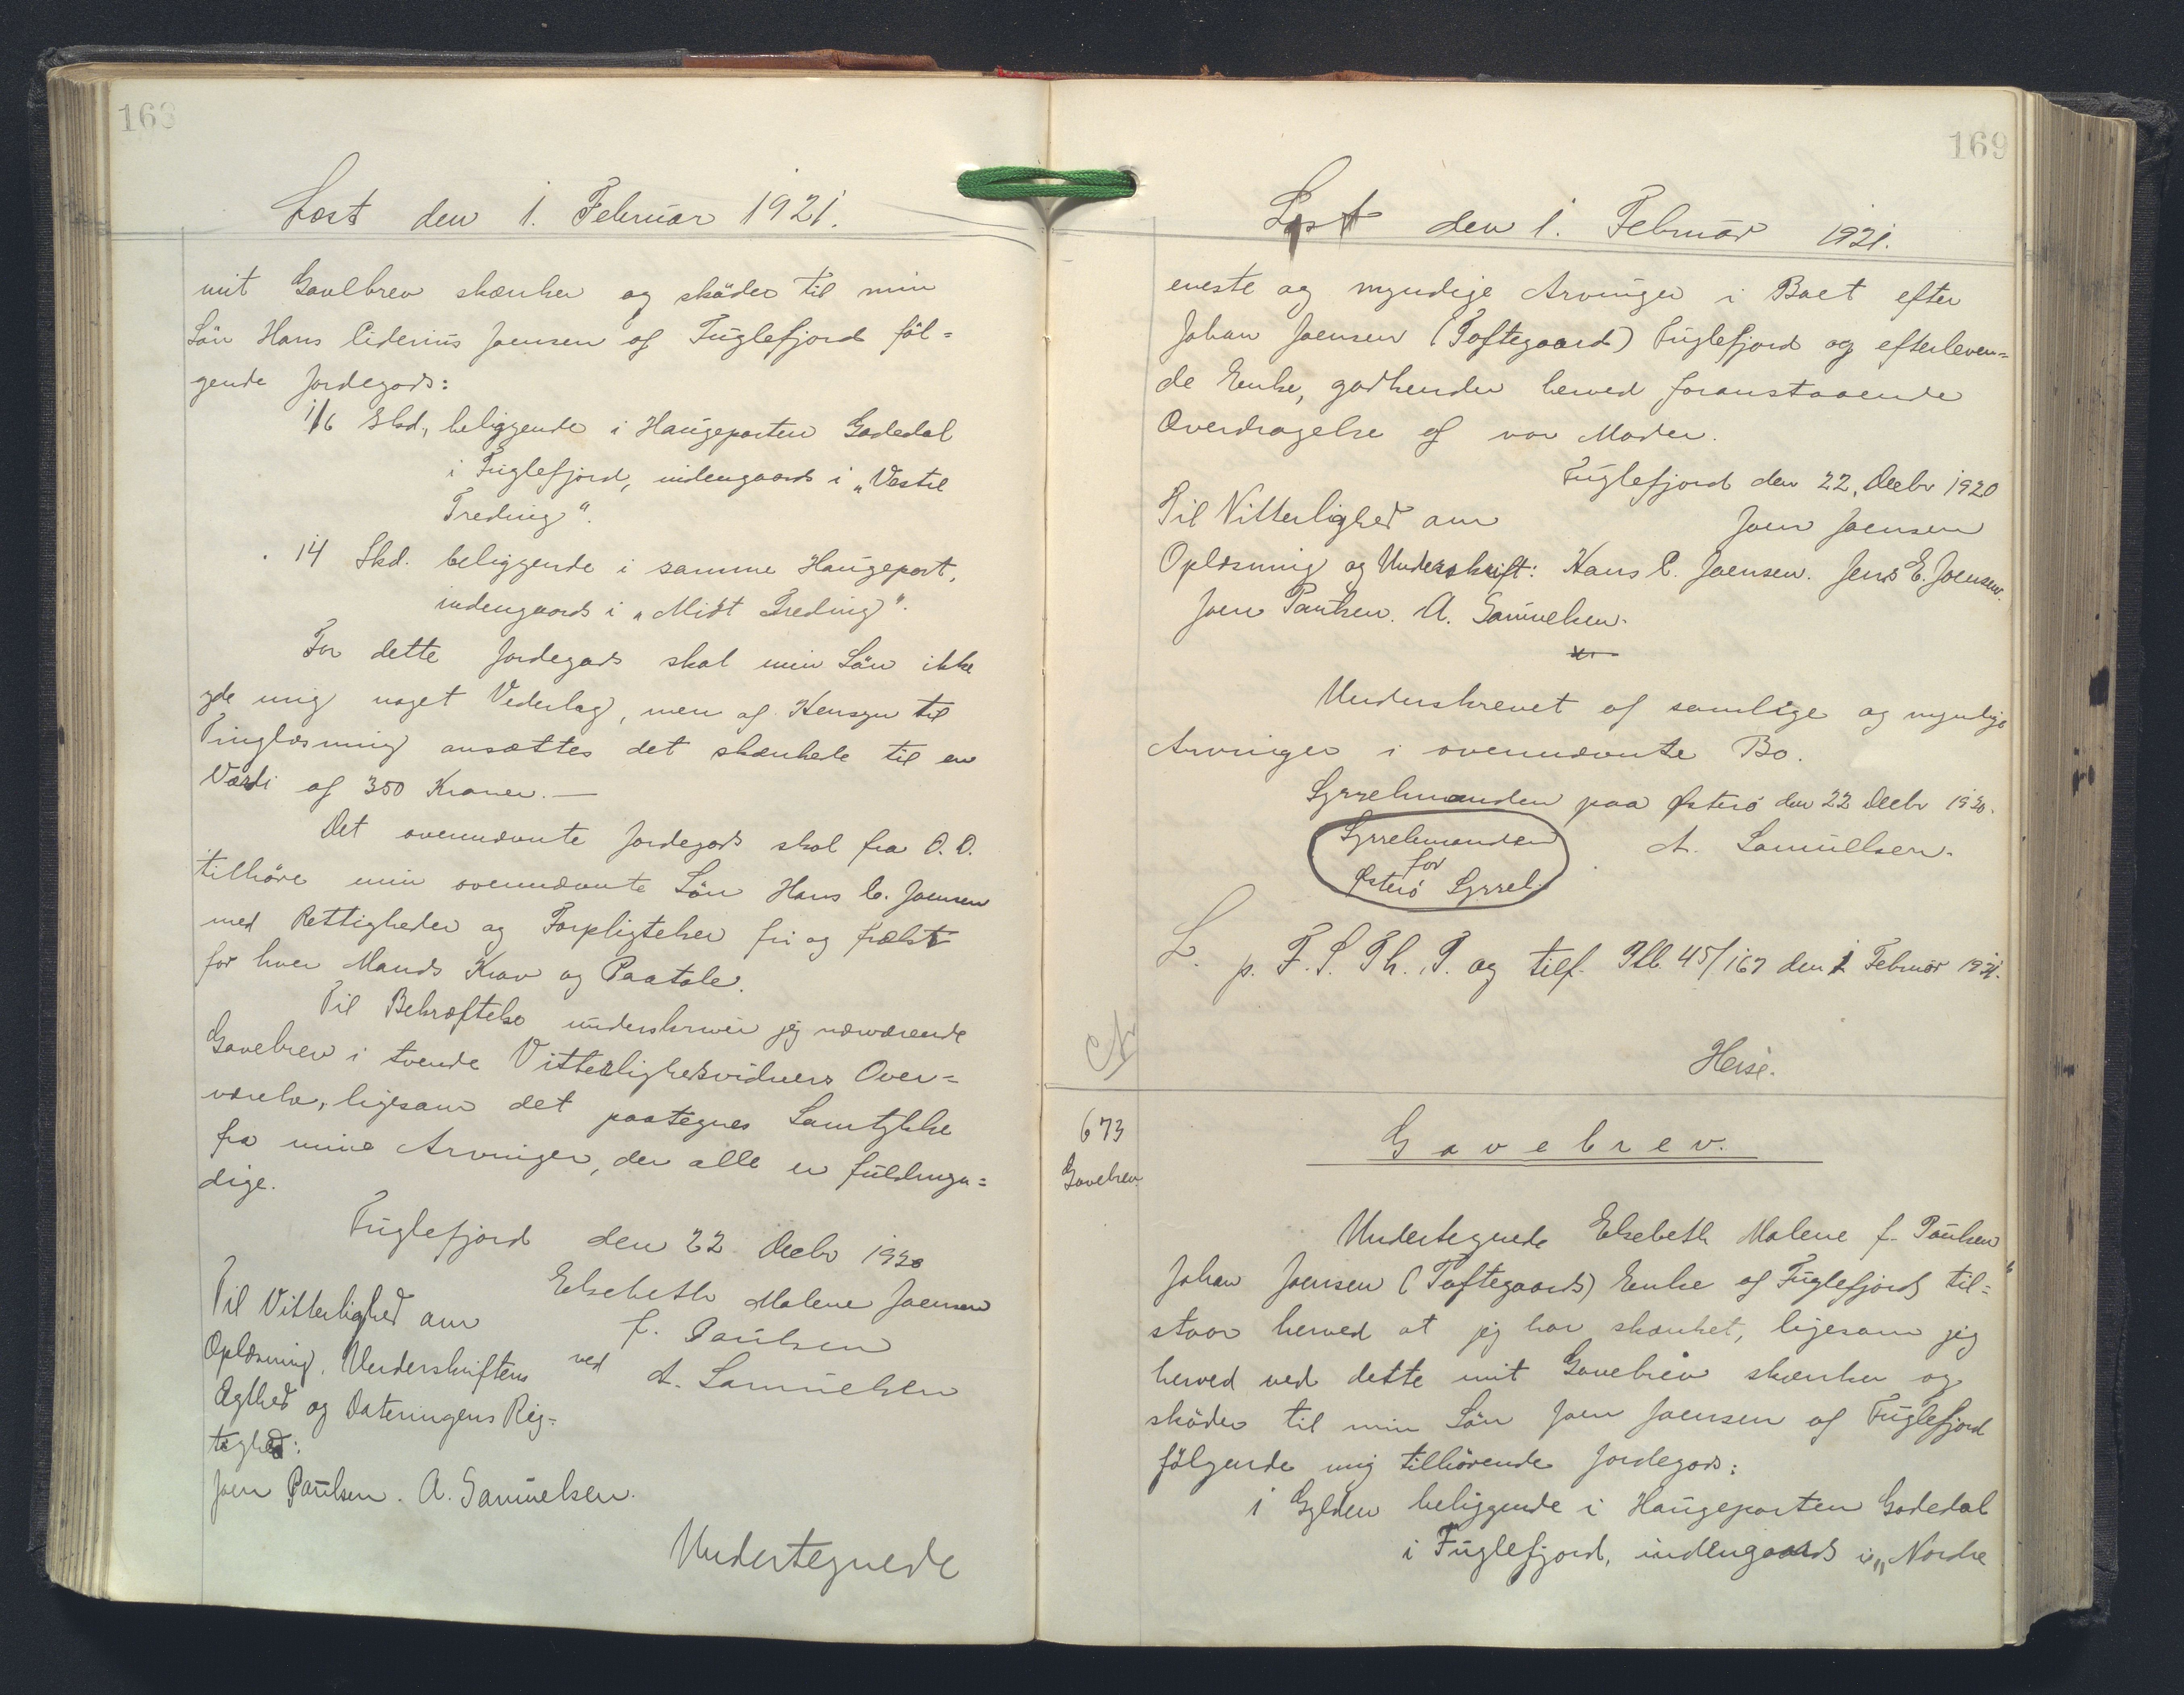 168
Læst den 1. Februar 1921.
mit Gavebrev skænker og sköder til min
Sön Hans Ciderius Joensen af Fuglefjord föl=
gende Jordegods:
1/6 Skd., beliggende i Haugeparten Gadedal
i Fuglefjord, indengaards i "Vestre
Treding".
14 Skd. beliggende i samme Haugepart,
indengaards i "Midt Treding".
For dette Jordegods skal min Sön ikke
yde mig noget Vederlag, men af Hensyn til
Tinglæsning ansættes det skænkede til en
Værdi af 350 Kroner.—
Det ovennævnte Jordegods skal fra D. D.
tilhöre min ovennævnte Sön Hans C. Joensen
med Rettigheder og Forpligtelser fri og frelst
for hver Mands Krav og Paatale.
Til Bekræftelse underskriver jeg nærværende
Gavebrev i tvende Vitterlighedsvidners Over=
værelse, ligesom det paategnes Samtykke
fra mine Arvinger, der alle er fuldmyn=
dige.
Fuglefjord den 22 Decbr 1920
Elsebeth Malene Joensen
f. Poulsen
ved A. Samuelsen
Til Vitterlighed om
Oplæsning, Underskriftens
Ægthed og Dateringens Rig=
tighed:
Joen Poulsen. A. Samuelsen.
Undertegnede
169
Læst den 1. Februar 1921.
eneste og myndige Arvinger i Boet efter
Johan Joensen (Toftegaard) Fuglefjord og efterleven=
de Enke, godkender herved foranstaaende
Overdragelse af vor Moder.
Fuglefjord den 22. Decbr 1920
Til Vitterlighed om Joen Joensen
Oplæsning og Underskrift: Hans C. Joensen. Jens E. Joensen.
Joen Poulsen. A. Samuelsen.
Underskrevet af samlige og myndige
Arvinger i ovennævnte Bo.
Sysselmanden paa Østerö den 22 Decbr 1920.
Sysselmanden
for
Østerö Syssel.
A. Samuelsen.
L. p. F. S. Th. P. og tilf. Ptb. 45/167 den 1 Februar 1921.
Heise.
673
Gavebrev.
Gavebrev.
Undertegnede Elsebeth Malene f. Poulsen
Johan Joensen (Toftegaards) Enke af Fuglefjord, til=
staar herved at jeg har skænket, ligesom jeg
herved ved dette mit Gavebrev skænker og
sköder til min Sön Joen Joensen af Fuglefjord
fölgende mig tilhörende Jordegods:
1 Gylden beliggende i Haugeparten Gadedal
i Fuglefjord, indengaards i "Nordre